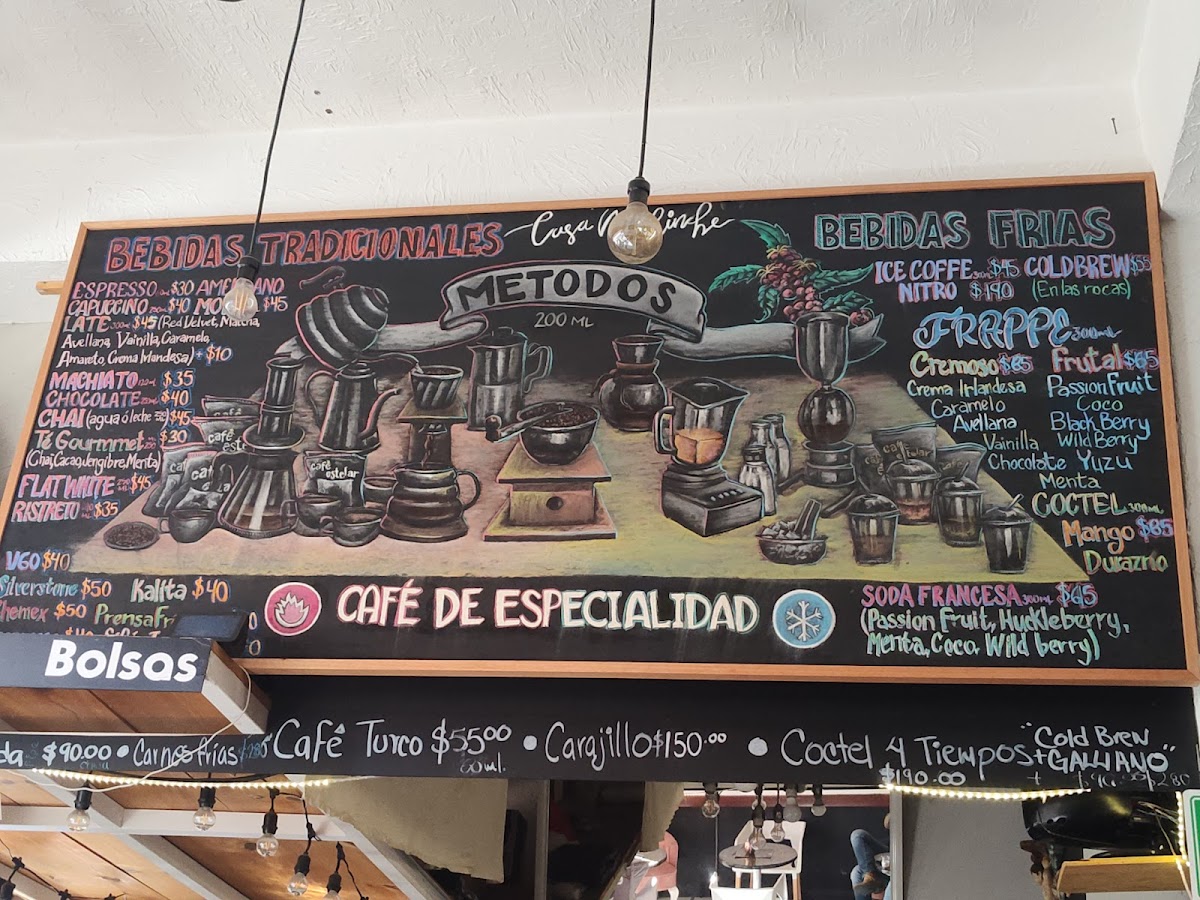 BEBIDAS TRADICIONALES
ESPRESSO $30 AMERICANO
CAPUCCINO $40 $45
LATE 300ml $45 (Red Velvet, Matcha,
Avellana, Vainilla, Caramelo,
Amareto, Crema Irlandesa) + $10
MACHIATO $35
CHOCOLATE $40
CHAI (agua ó leche $45
Té Gourmmet $30
(Chai, Cacao, Jengibre, Menta)
FLAT WHITE $45
RISTRETO $35
V60 $40
Silverstone $50 Kalita $40
Chemex $50
Casa
METODOS
200 ML
café estelar
CAFÉ DE ESPECIALIDAD
BEBIDAS FRIAS
ICE COFFE $45 COLDBREW $55
NITRO $190 (En las rocas)
FRAPPE 300ml
Cremoso $65 Frutal $65
Crema Irlandesa Passion Fruit
Caramelo Coco
Avellana Black Berry
Vainilla Wild Berry
Chocolate Yuzu
Menta
COCTEL 300ml
Mango $85
Durazno
SODA FRANCESA 300ml $65
(Passion Fruit, Huckleberry,
Menta, Coco, Wild berry)
Bolsas
$90.00 • Carnes frías $280
Café Turco $55.00 • Carajillo $150.00 • Coctel 4 Tiempos
60ml.
$190.00
"Cold Brew
+ GALLIANO"